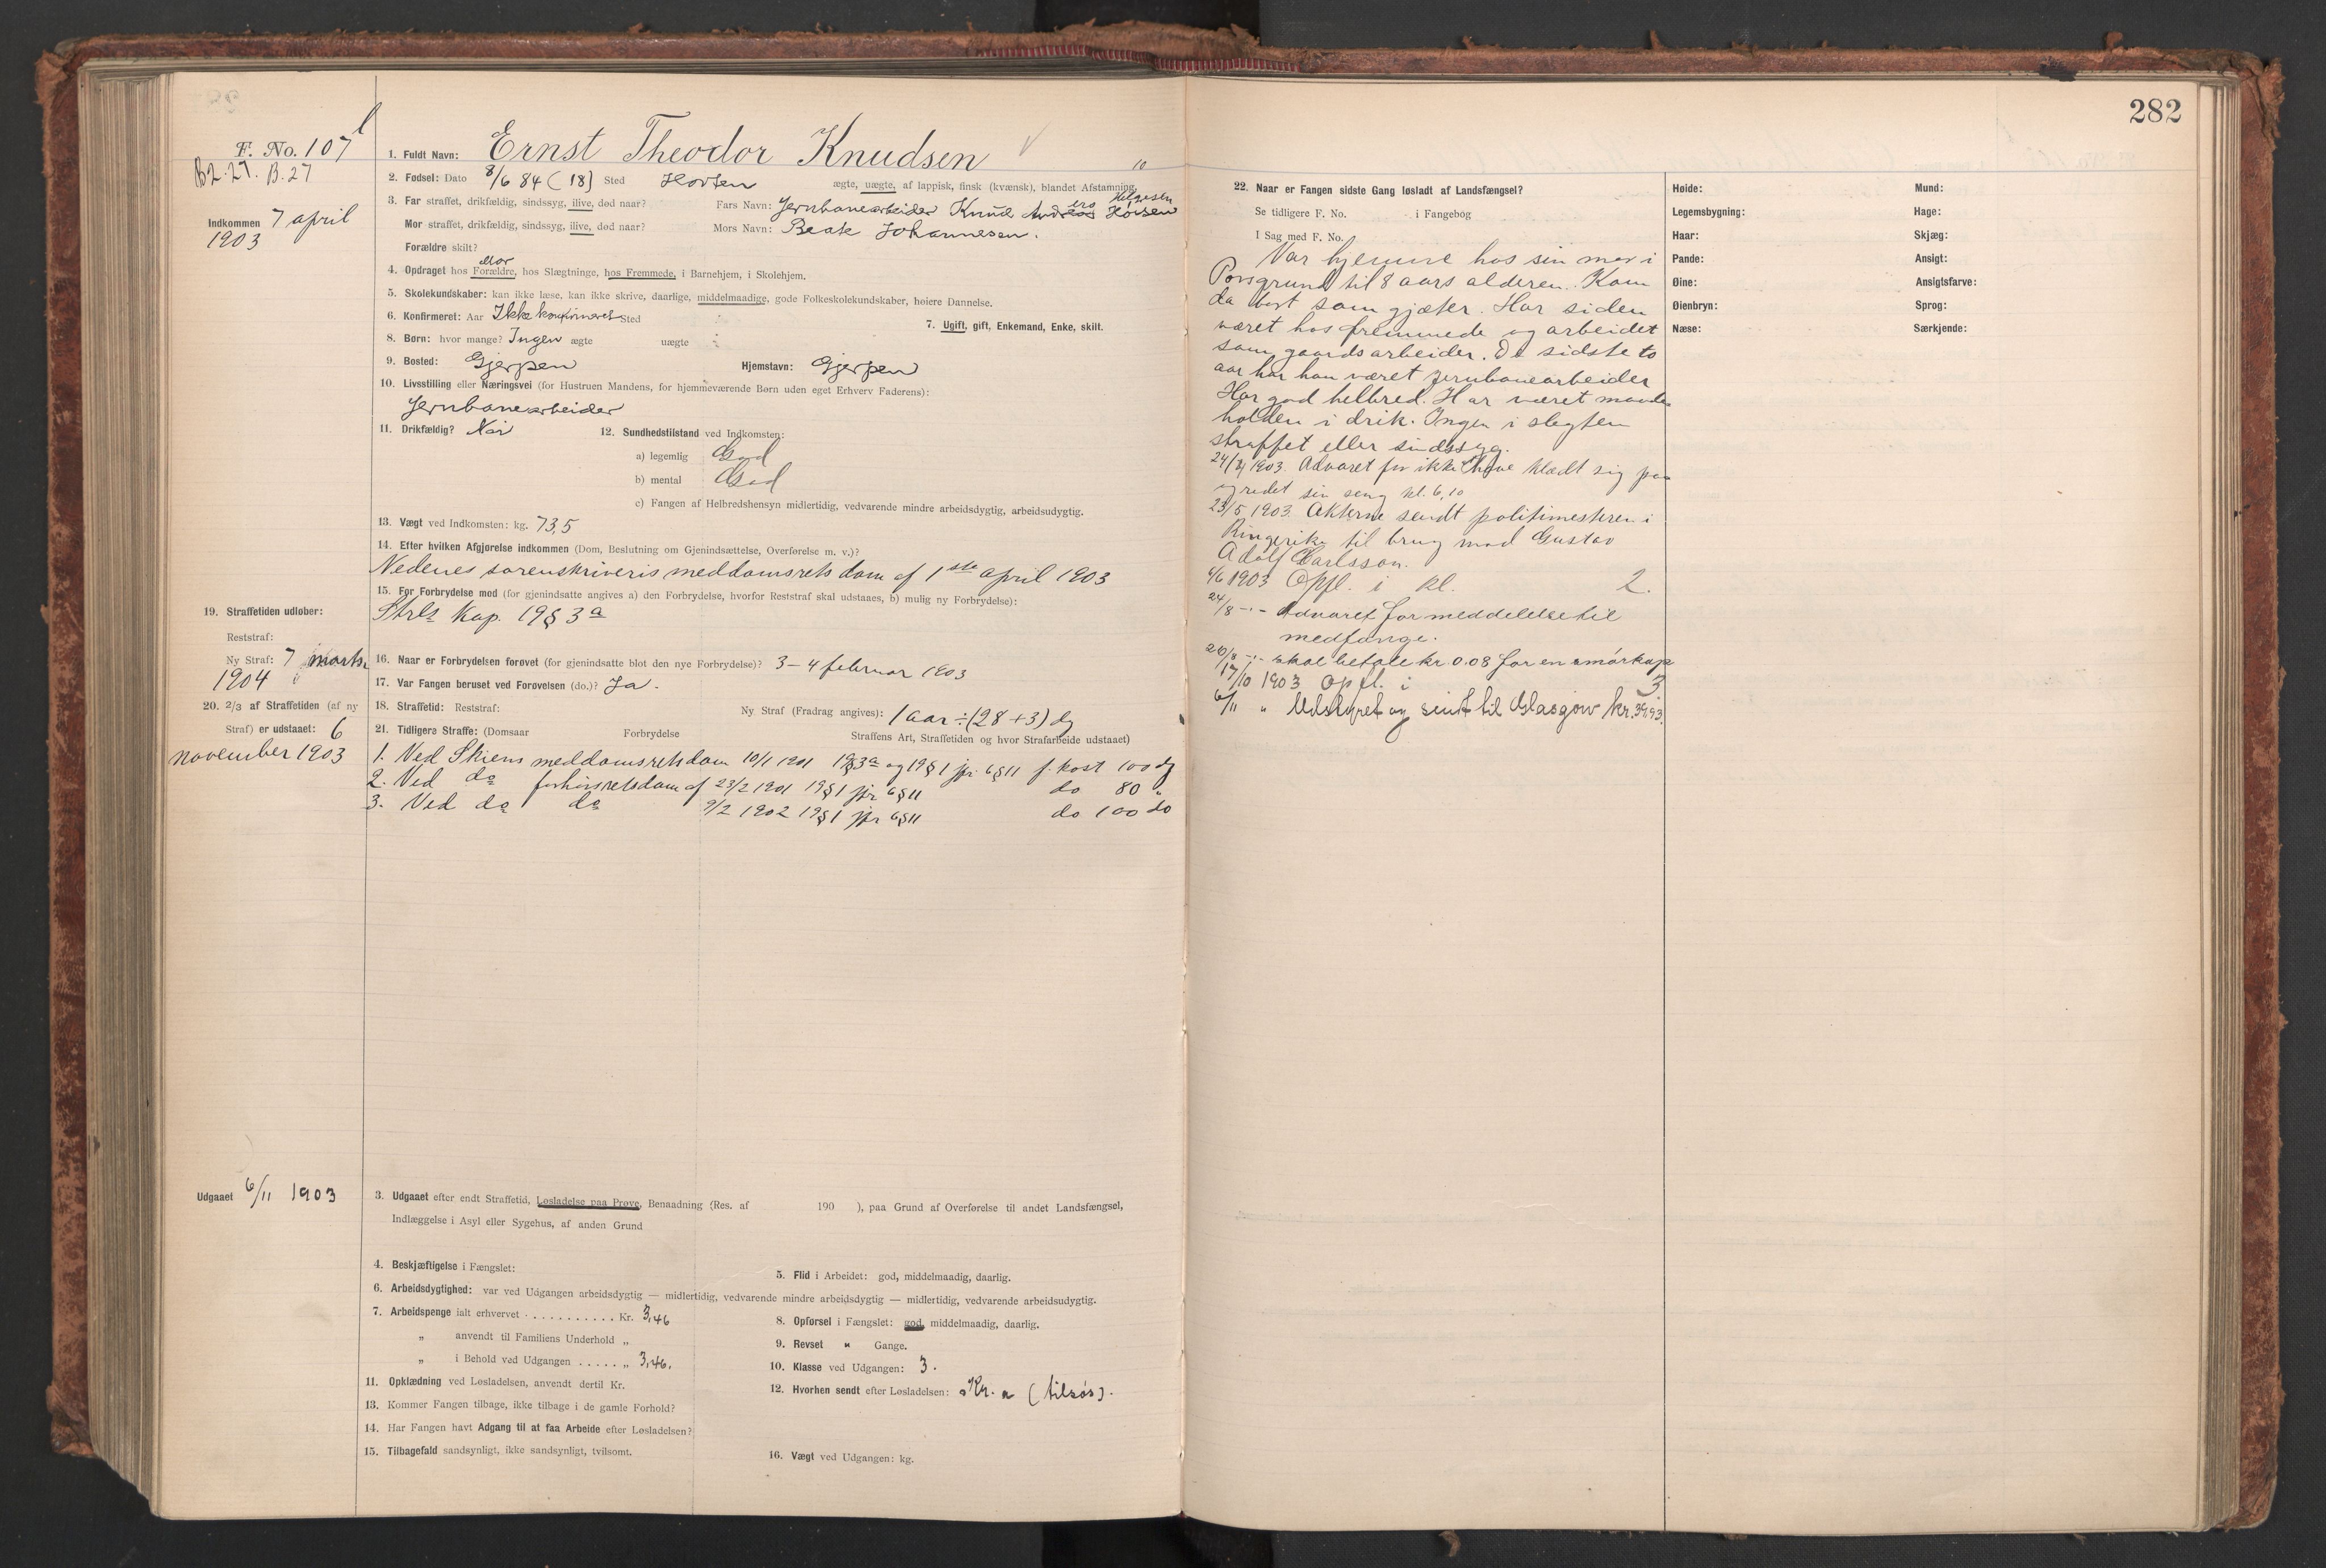 282
F. No. 107
B2.27. B.27
Indkommen 7 april
1903
1. Fuldt Navn: Ernst Theodor Knudsen
2. Fødsel: Dato 8/6 84 (18) Sted Horten ægte, uægte, af lappisk, finsk (kvænsk), blandet Afstamning. 10
3. Far straffet, drikfældig, sindssyg, ilive, død naar? Fars Navn: Jernbanearbeider Knud Andreas Helgesen
Mor straffet, drikfældig, sindssyg, ilive, død naar? Mors Navn: Beate Johannesen.
Forældre skilt?
Mor
4. Opdraget hos Forældre, hos Slægtninge, hos Fremmede, i Barnehjem, i Skolehjem.
5. Skolekundskaber: kan ikke læse, kan ikke skrive, daarlige, middelmaadige, gode Folkeskolekundskaber, høiere Dannelse.
6. Konfirmeret: Aar Ikke konfirmeret Sted
7. Ugift, gift, Enkemand, Enke, skilt.
8. Børn: hvor mange? Ingen ægte uægte
9. Bosted: Gjerpen Hjemstavn: Gjerpen
10. Livsstilling eller Næringsvei (for Hustruen Mandens, for hjemmeværende Børn uden eget Erhverv Faderens):
Jernbanearbeider
11. Drikfældig? Nei 12. Sundhedstilstand ved Indkomsten:
a) legemlig God
b) mental God
c) Fangen af Helbredshensyn midlertidig, vedvarende mindre arbeidsdygtig, arbeidsudygtig.
13. Vægt ved Indkomsten: kg. 73,5
14. Efter hvilken Afgjørelse indkommen (Dom, Beslutning om Gjenindsættelse, Overførelse m. v.)?
Nedenes sorenskriveris meddomsrets dom af 1ste april 1903
15. For Forbrydelse mod (for gjenindsatte angives a) den Forbrydelse, hvorfor Reststraf skal udstaaes, b) mulig ny Forbrydelse):
Strls Kap. 19 § 3 a
19. Straffetiden udløber:
Reststraf:
Ny Straf: 7 marts
1904
16. Naar er Forbrydelsen forøvet (for gjenindsatte blot den nye Forbrydelse)? 3-4 februar 1903
17. Var Fangen beruset ved Forøvelsen (do.)? Ja.
20. 2/3 af Straffetiden (af ny
Straf) er udstaaet: 6
november 1903
18. Straffetid: Reststraf: Ny Straf (Fradrag angives): 1 aar ÷ (28+3) dg
21. Tidligere Straffe: (Domsaar Forbrydelse Straffens Art, Straffetiden og hvor Strafarbeide udstaaet)
1. Ved Skiens meddomsretsdom 10/1 1901 19§3a og 19§1 jfr. 6§11 f. kost 100 dg
2. Ved do forhørsretsdom af 23/2 1901 19§1 jfr 6§11 do 80 "
3. Ved do do 9/2 1902 19§1 jfr 6§11 do 100 do
Udgaaet 6/11 1903
3. Udgaaet efter endt Straffetid, Løsladelse paa Prøve, Benaadning (Res. af 190 ), paa Grund af Overførelse til andet Landsfængsel,
Indlæggelse i Asyl eller Sygehus, af anden Grund
4. Beskjæftigelse i Fængslet:
5. Flid i Arbeidet: god, middelmaadig, daarlig.
6. Arbeidsdygtighed: var ved Udgangen arbeidsdygtig — midlertidig, vedvarende mindre arbeidsdygtig — midlertidig, vedvarende arbeidsudygtig.
7. Arbeidspenge ialt erhvervet . . . . . . . . . . . Kr. 3,46
8. Opførsel i Fængslet: god, middelmaadig, daarlig.
„ anvendt til Familiens Underhold „
9. Revset " Gange.
„ i Behold ved Udgangen . . . . . „ 3,46.
10. Klasse ved Udgangen: 3.
11. Opklædning ved Løsladelsen, anvendt dertil Kr.
12. Hvorhen sendt efter Løsladelsen: Kr.a (tilsøs).
13. Kommer Fangen tilbage, ikke tilbage i de gamle Forhold?
14. Har Fangen havt Adgang til at faa Arbeide efter Løsladelsen?
15. Tilbagefald sandsynligt, ikke sandsynligt, tvilsomt.
16. Vægt ved Udgangen: kg.
22. Naar er Fangen sidste Gang løsladt af Landsfængsel?
Se tidligere F. No. i Fangebog
I Sag med F. No.
Var hjemme hos sin mor i
Porsgrund til 8 aars alderen. Kom
da bort som gjæter. Har siden
været hos fremmede og arbeidet
som gaardsarbeider. De sidste to
aar har han været jernbanearbeider
Har god helbred. Har været maade
holden i drik. Ingen i slegten
straffet eller sindssyg.
24/4 1903. Advaret for ikke have klædt sig paa
og redet sin seng kl. 6,10
23/5 1903. Akterne sendt politimesteren i
Ringerike til brug mod Gustav
Adolf Carlsson.
6/6 1903 Opfl. i kl. 2.
24/8 -"- Advaret for meddelelse til
medfange.
26/8 -"- skal betale kr 0.08 for en smørkop
17/10 1903 Opfl. i 3
6/11 " Udstyret og sendt til Glasgow kr. 39,93.
Høide:
Legemsbygning:
Haar:
Pande:
Øine:
Øienbryn:
Næse:
Mund:
Hage:
Skjæg:
Ansigt:
Ansigtsfarve:
Sprog:
Særkjende: